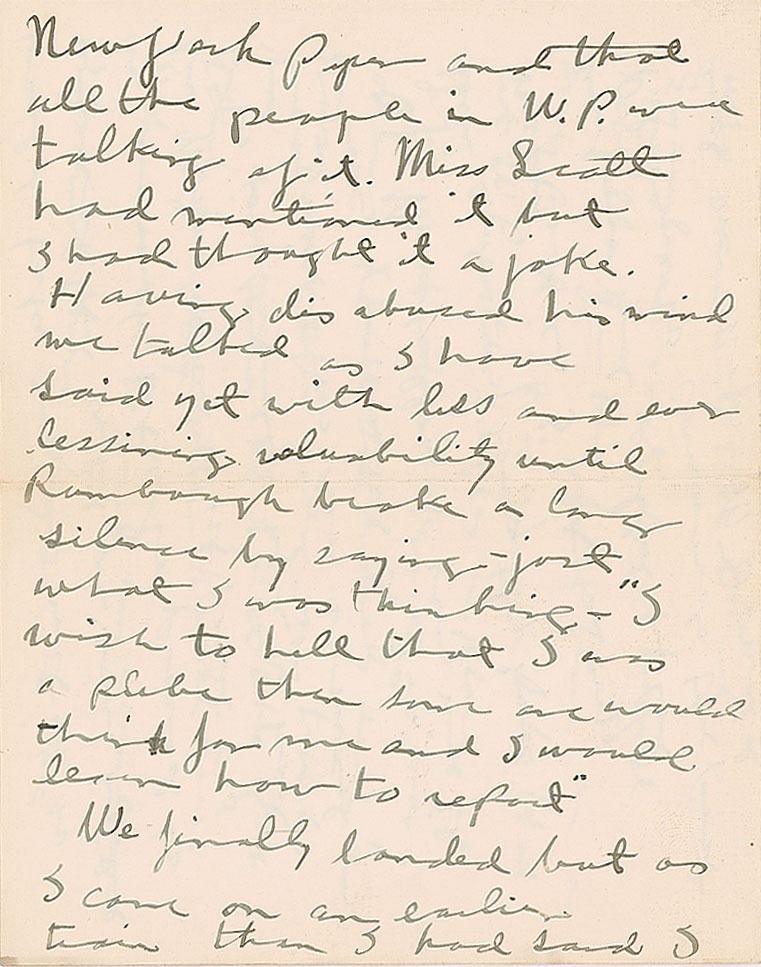 New York Paper and that
all the people in W.P. were
talking of it. Miss Scott
had mentioned it but
I had thought it a joke.
Having dis abused his mind
we talked as I have
said yet with less and ever
lessining voluability until
Rumbough broke a long
silence by saying - just
what I was thinking - "I
wish to hell that I was
a plebe then some one would
think for me and I would
learn how to
We finally landed but as
I came on an earlier
train than I had said I